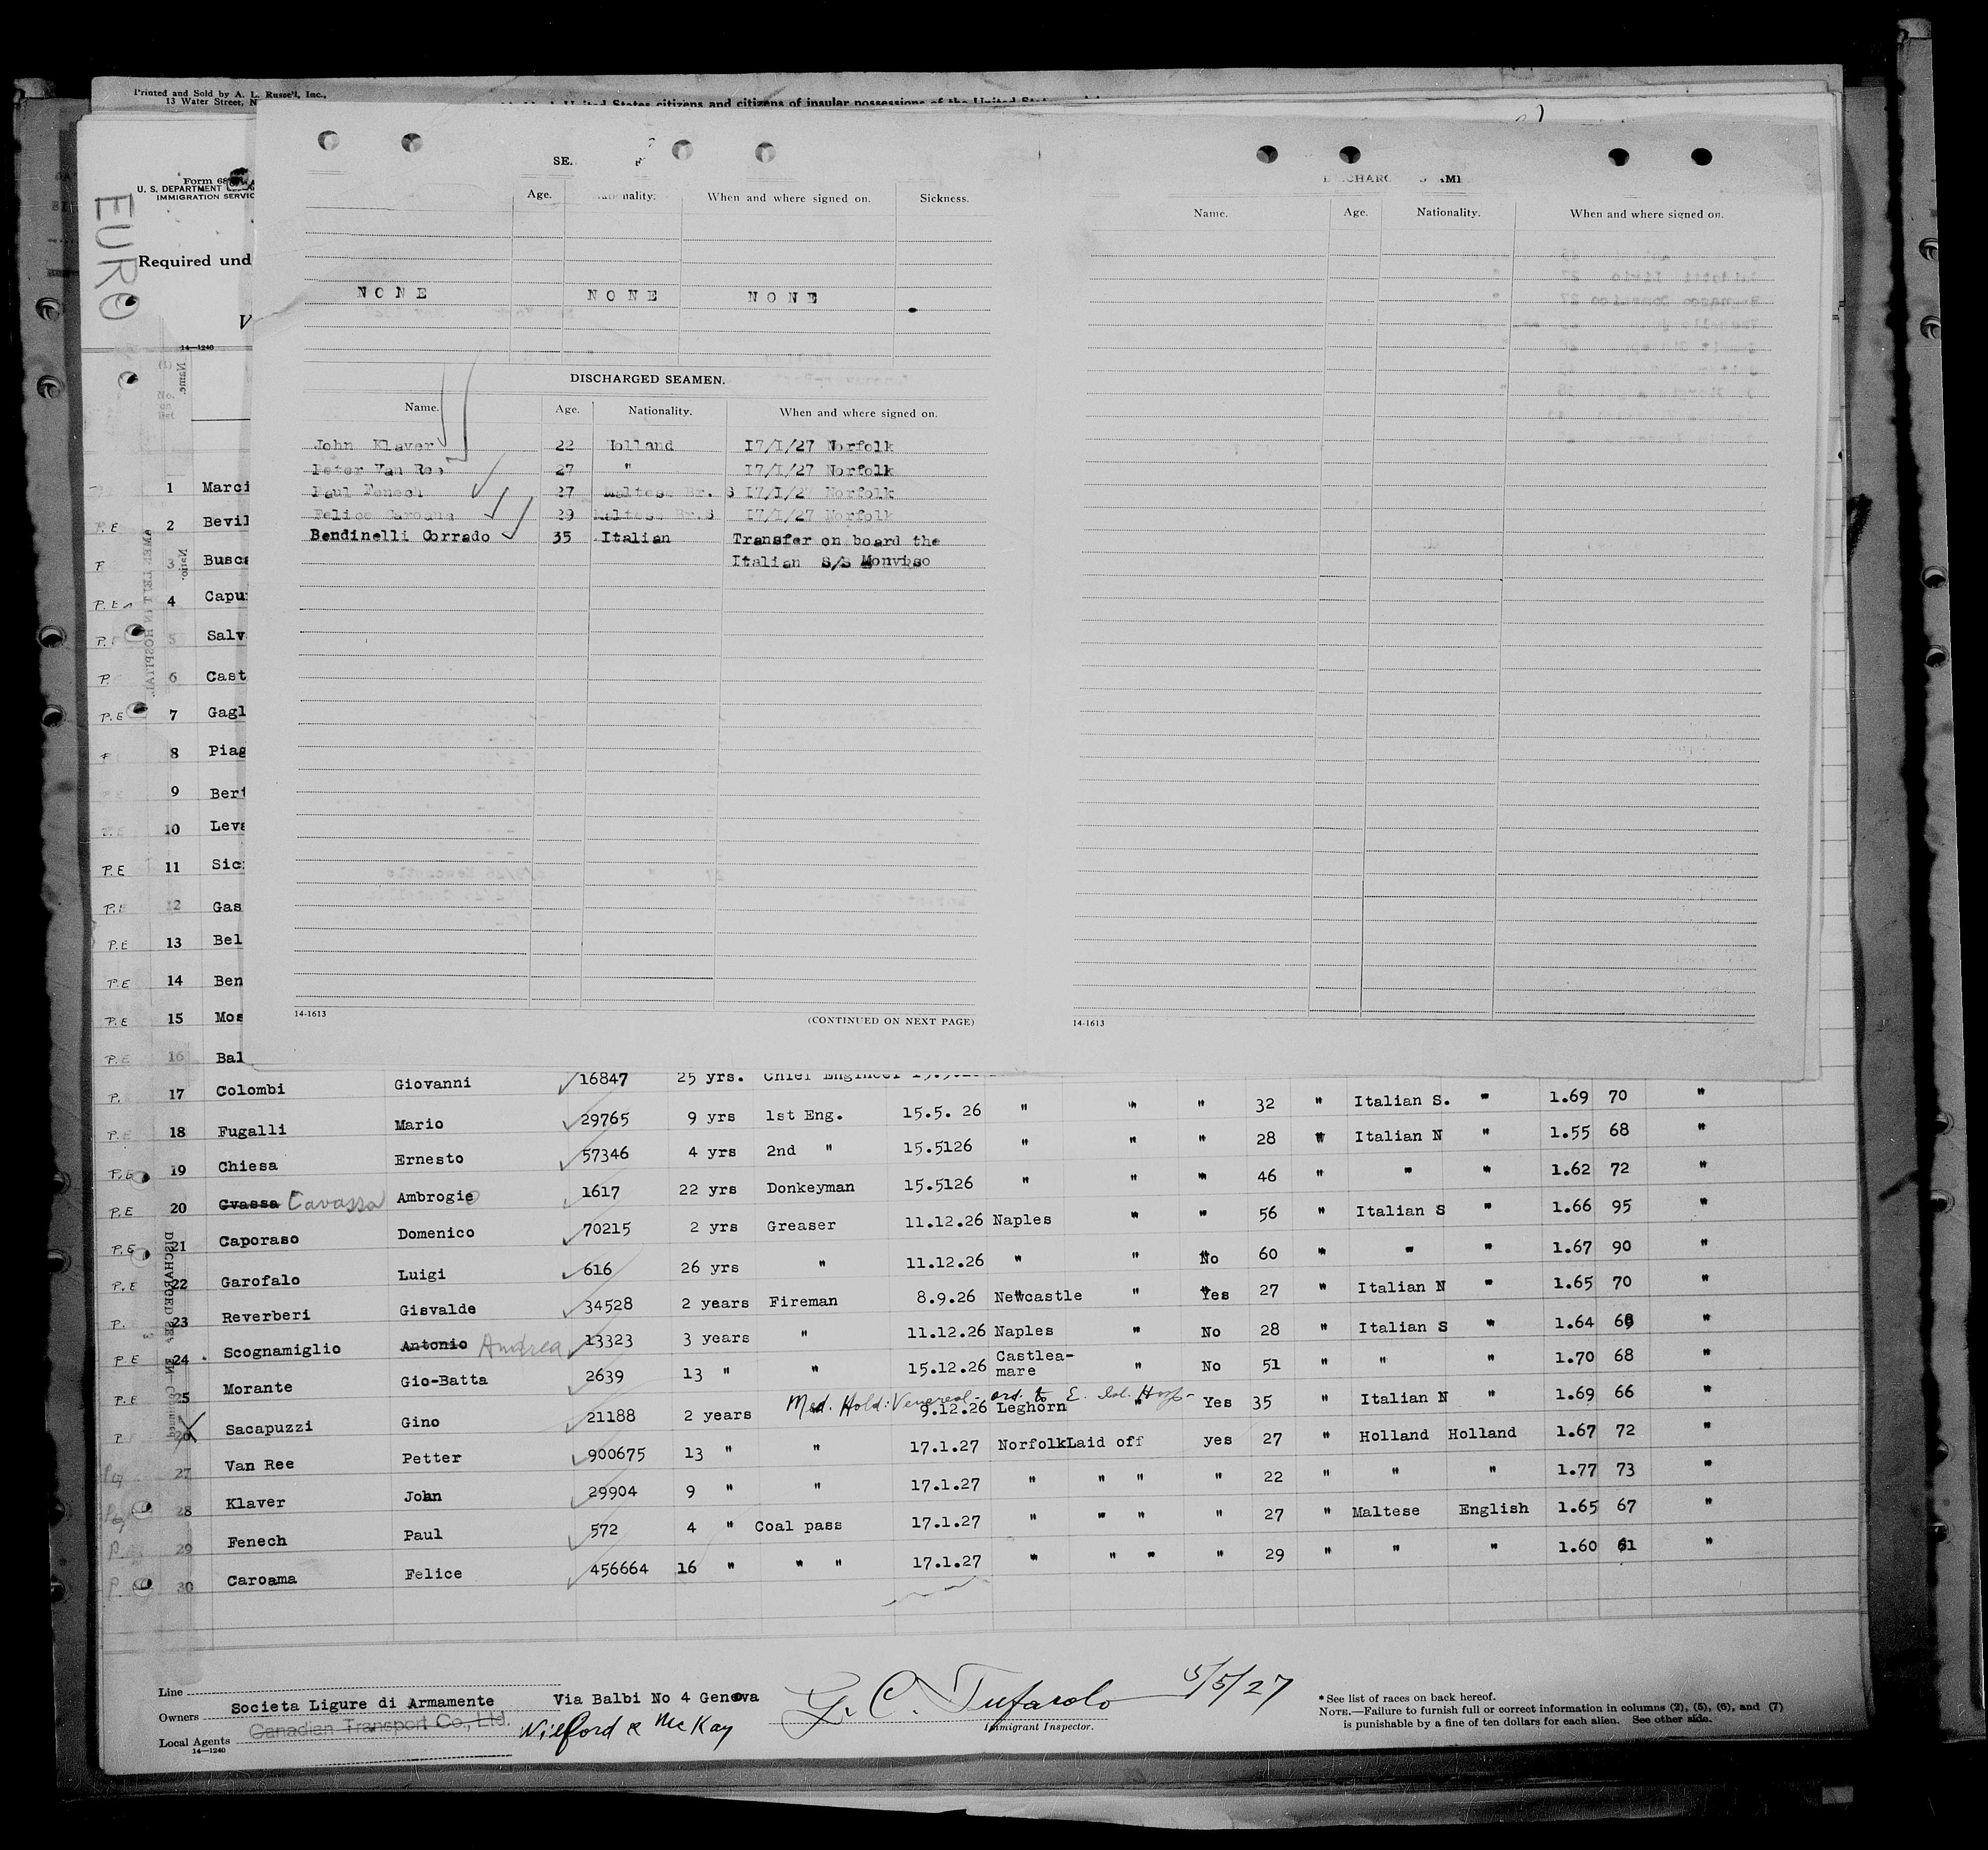 Printed and Sold by A. L. Russell, Inc.,
13 Water Street, N
United States citizens and citizens of insular possessions of the United
Form 68
U. S. DEPARTMENT
IMMIGRATION SERVIC
EURO
Required und
V
14—1240
Age. Nationality. When and where signed on. Sickness.
NONE NONE NONE
DISCHARGED SEAMEN.
Name. Age. Nationality. When and where signed on.
John Klaver 22 Holland 17/1/27 Norfolk
Peter Van Ree 27 " 17/1/27 Norfolk
Paul Fenech 27 Maltese Br. S 17/1/27 Norfolk
Felice Caroana 29 Maltese Br.S 17/1/27 Norfolk
Bendinelli Corrado 35 Italian Transfer on board the
Italian S/S Monviso
14-1613 (CONTINUED ON NEXT PAGE)
Name. Age. Nationality. When and where signed on.
14-1613
1 Marci
P.E 2 Bevil
3 Busca
P.E 4 Capu
5 Salv
P. 6 Cast
P.E 7 Gagl
8 Piag
9 Bert
10 Leva
P.E 11 Sic
P.E 12 Gas
P.E 13 Bel
P.E 14 Ben
P.E 15 Mos
P.E 16 Bal
P. 17 Colombi Giovanni 16847 25 yrs. Chief Engineer
P.E 18 Fugalli Mario 29765 9 yrs 1st Eng. 15.5. 26 " " " 32 " Italian S. " 1.69 70 "
P.E 19 Chiesa Ernesto 57346 4 yrs 2nd " 15.5126 " " " 28 " Italian N " 1.55 68 "
P.E 20 Gvassa Cavassa Ambrogio 1617 22 yrs Donkeyman 15.5126 " " " 46 " " " 1.62 72 "
P.E 21 Caporaso Domenico 70215 2 yrs Greaser 11.12.26 Naples " " 56 " Italian S " 1.66 95 "
P.E 22 Garofalo Luigi 616 26 yrs " 11.12.26 " " No 60 " " " 1.67 90 "
P. 23 Reverberi Gisvalde 34528 2 years Fireman 8.9.26 Newcastle " Yes 27 " Italian N " 1.65 70 "
P E 24 Scognamiglio Antonio Andrea 13323 3 years " 11.12.26 Naples " No 28 " Italian S " 1.64 68 "
P.E 25 Morante Gio-Batta 2639 13 " " 15.12.26 Castlea-mare " No 51 " " " 1.70 68 "
Med. Hold: Venereal- ord. to E. Isl. Hosp-
26 Sacapuzzi Gino 21188 2 years 9.12.26 Leghorn " Yes 35 " Italian N " 1.69 66 "
27 Van Ree Petter 900675 13 " " 17.1.27 Norfolk Laid off yes 27 " Holland Holland 1.67 72 "
28 Klaver John 29904 9 " " 17.1.27 " " " " 22 " " " 1.77 73 "
29 Fenech Paul 572 4 " Coal pass 17.1.27 " " " " 27 " Maltese English 1.65 67 "
30 Caroama Felice 456664 16 " " " 17.1.27 " " " " 29 " " " 1.60 61 "
Line
Owners Societa Ligure di Armamente Via Balbi No 4 Genova
Local Agents Canadian Transport Co., Ltd. Wilford & McKay
14—1240
5/5/27
Immigrant Inspector.
* See list of races on back hereof.
NOTE.—Failure to furnish full or correct information in columns (2), (5), (6), and (7)
is punishable by a fine of ten dollars for each alien. See other side.